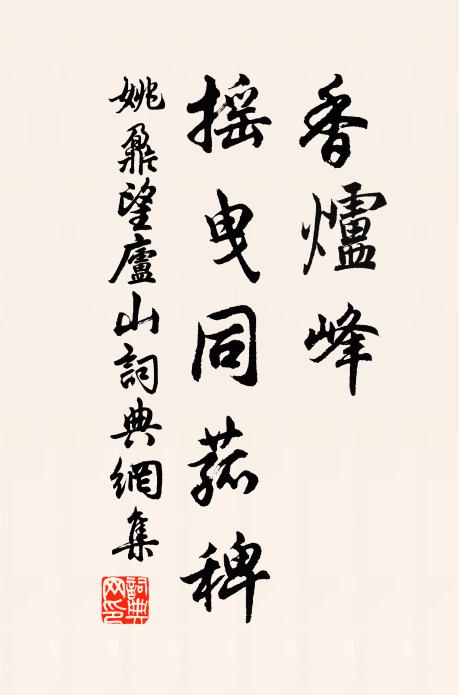 香爐峰
摇曳同菰稗
姚鼐望廬山詞典網集
詞典网印